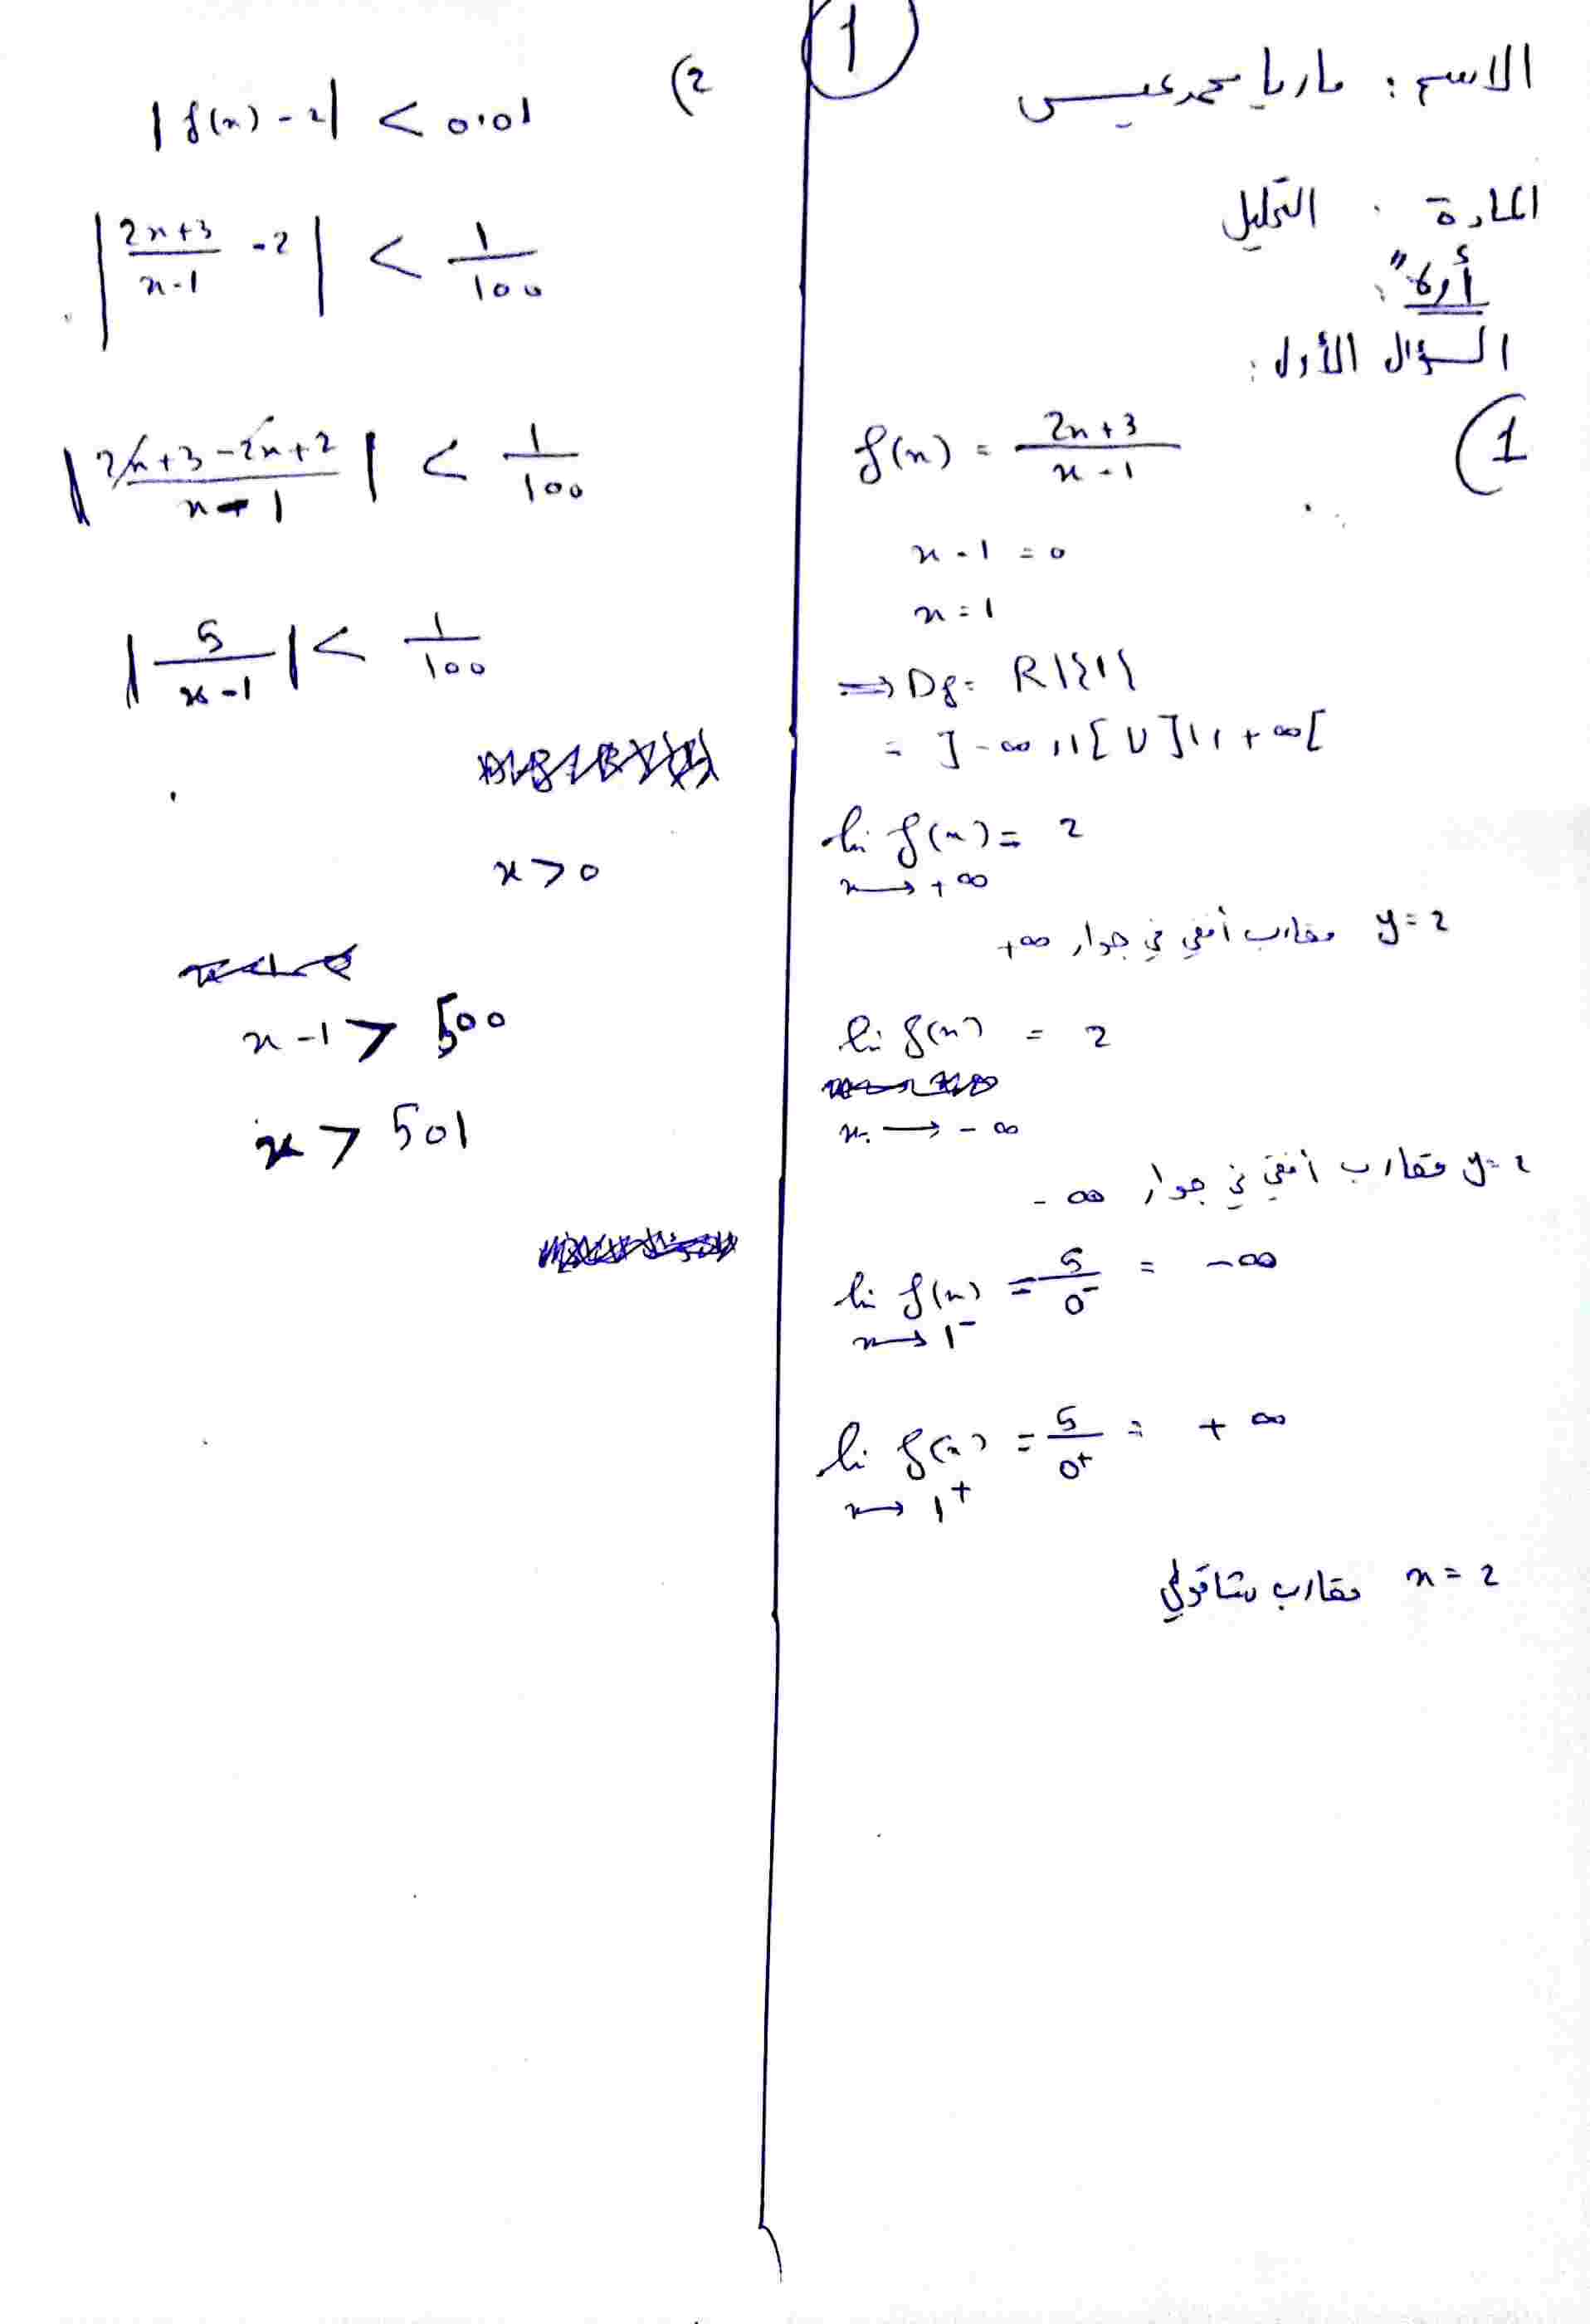 1
الاسم : ماريا محمد عيسى
المادة : التحليل
أولاً :
السؤال الأول :
1)
f(x) = (2x+3)/(x-1)
x - 1 = 0
x = 1
⇒ Df = R\{1}
= ]-∞,1[ ∪ ]1,+∞[
lim f(x) = 2
x → +∞
y = 2 مقارب أفقي في جوار +∞
lim f(x) = 2
x → -∞
y = 2 مقارب أفقي في جوار -∞
lim f(x) = 5/0⁻ = -∞
x → 1⁻
lim f(x) = 5/0⁺ = +∞
x → 1⁺
x = 2 مقارب شاقولي
2)
|f(x) - 2| < 0.01
|(2x+3)/(x-1) - 2| < 1/100
|(2x+3-2x+2)/(x-1)| < 1/100
|5/(x-1)| < 1/100
x > 0
x - 1 > 500
x > 501